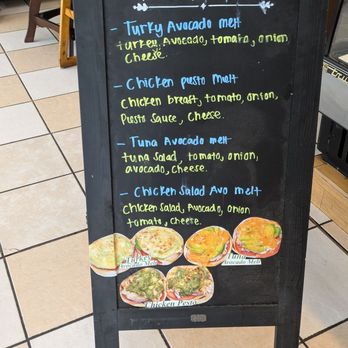 - Turky Avocado melt
turkey, Avocado, tomato, onion
cheese.
- Chicken pusto Melt
Chicken breast, tomato, onion,
Pusto Sauce, Cheese.
- Tuna Avocado melt
tuna salad, tomato, onion,
avocado, cheese.
- Chicken Salad Avo melt
Chicken Salad, Avocado, onion
tomato, cheese.
Turkey
Avocado Melt
Tuna
Avocado Melt
Chicken Pesto